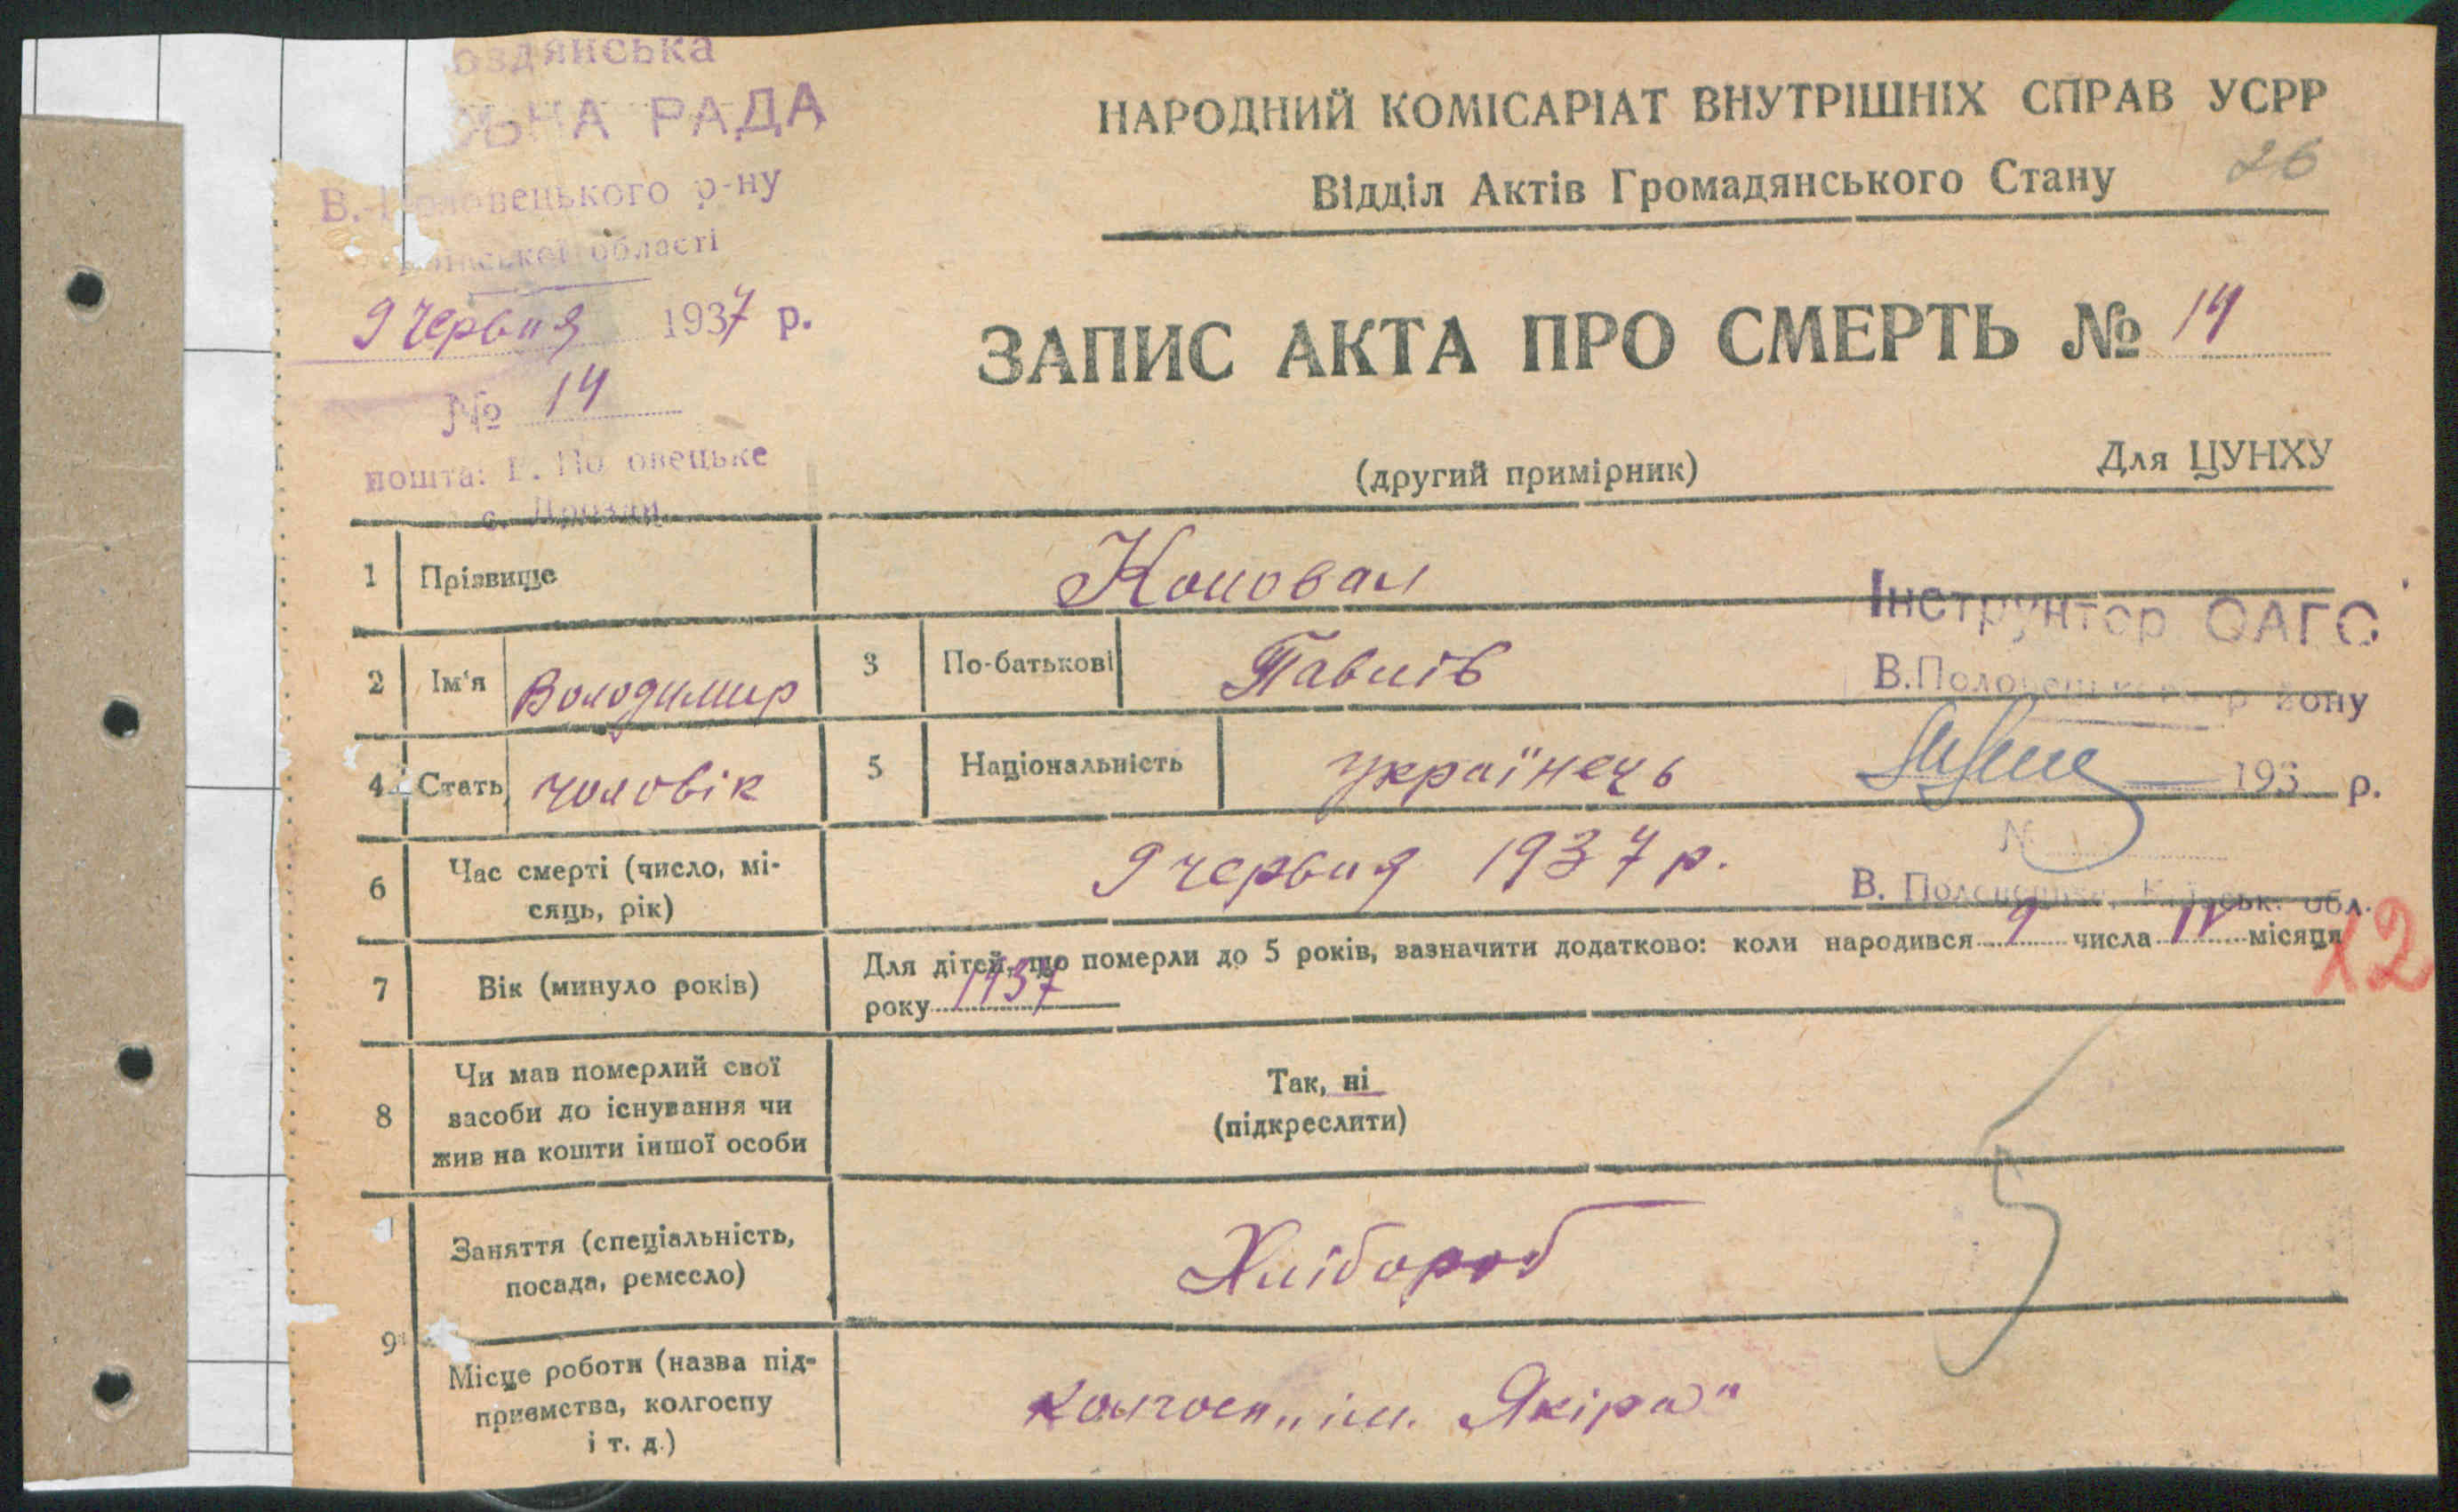 оздянська
ЛЬНА РАДА
В.-Половецького р-ну
Київської області
9 Червня 1937 р.
№ 14
пошта: В. Половецьке
с. Дрозди
НАРОДНИЙ КОМІСАРІАТ ВНУТРІШНІХ СПРАВ УСРР
Відділ Актів Громадянського Стану
26
ЗАПИС АКТА ПРО СМЕРТЬ № 14
(другий примірник)
Для ЦУНХУ
1 Прізвище Коновал
Інструктор ОАГС
2 Ім'я Володимир 3 По-батькові Павлів
В.Половецького р йону
4 Стать чоловік 5 Національність українець
193 р.
№
6 Час смерті (число, мі-
сяць, рік) 9 червня 1937 р.
В. Половецьке, Київськ. обл.
7 Вік (минуло років) Для дітей, що померли до 5 років, зазначити додатково: коли народився 9 числа IV місяця
року 1937
12
8 Чи мав померлий свої
засоби до існування чи
жив на кошти іншої особи
Так, ні
(підкреслити)
9 Заняття (спеціальність,
посада, ремесло) Хлібороб
Місце роботи (назва під-
приємства, колгоспу
і т. д.) колгосп „ім. Якіра"